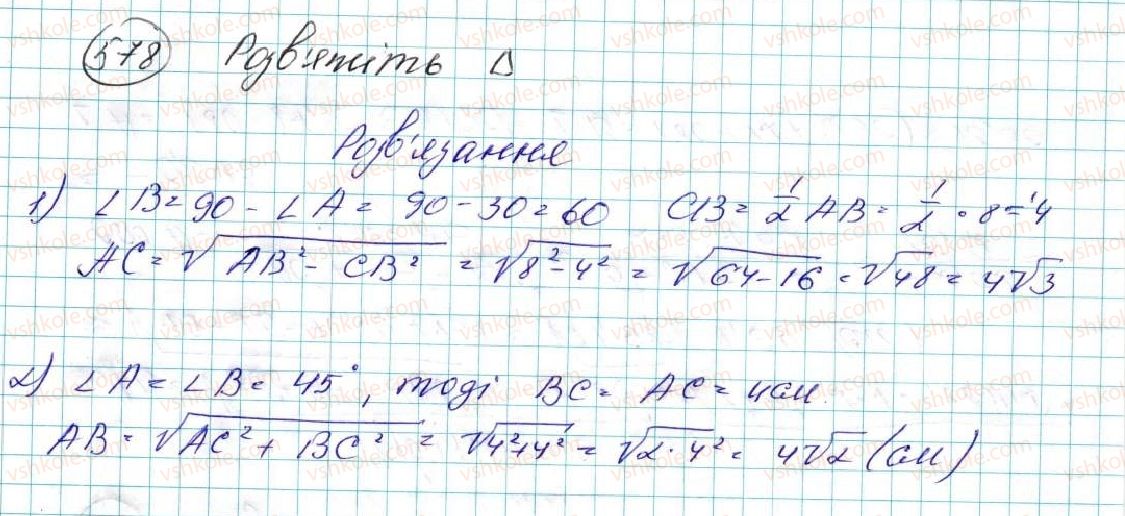 578 Розв'яжіть Δ
Розв'язання
1) ∠B = 90 - ∠A = 90 - 30 = 60 CB = 1/2 AB = 1/2 · 8 = 4
AC = √(AB² - CB²) = √(8² - 4²) = √(64 - 16) = √48 = 4√3
2) ∠A = ∠B = 45°, тоді BC = AC = 4см.
AB = √(AC² + BC²) = √(4² + 4²) = √(2 · 4²) = 4√2 (см)